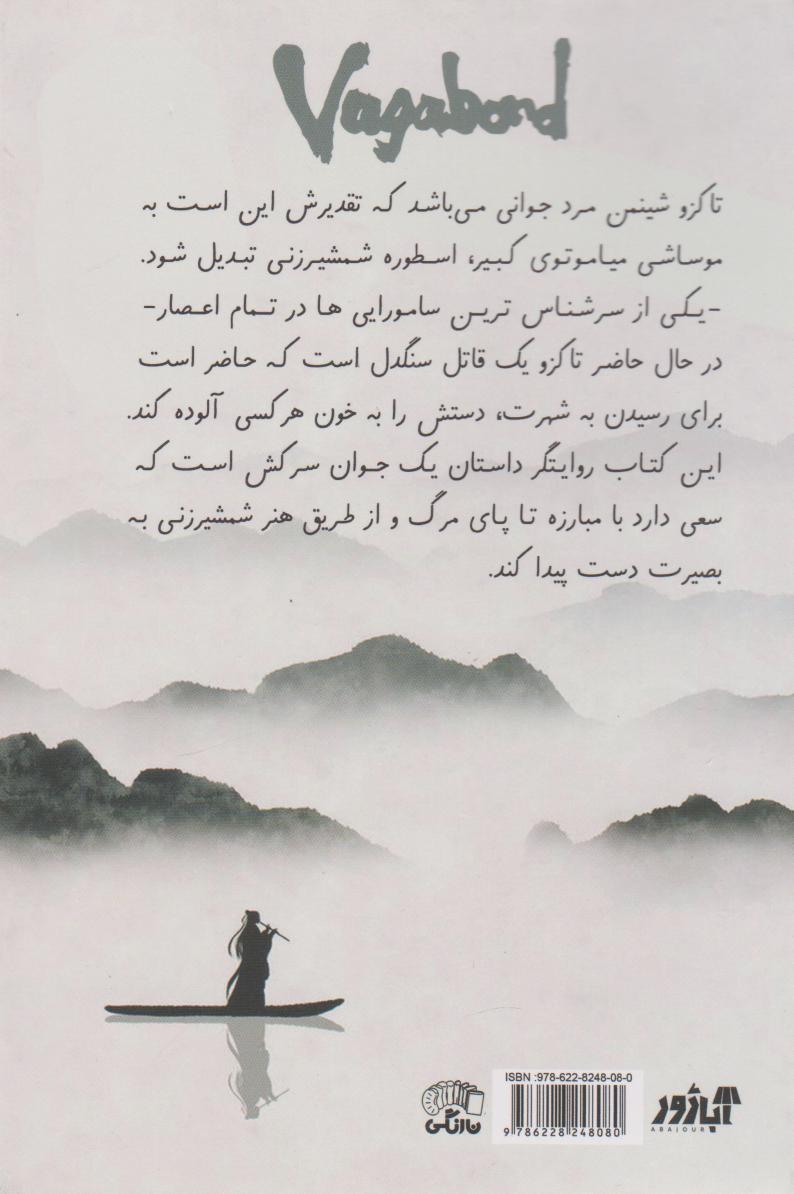 Vagabond
تاکزو شینمن مرد جوانی می‌باشد که تقدیرش این است به
موساشی میاموتوی کبیر، اسطوره شمشیرزنی تبدیل شود.
-یکی از سرشناس ترین سامورایی ها در تمام اعصار-
در حال حاضر تاکزو یک قاتل سنگدل است که حاضر است
برای رسیدن به شهرت، دستش را به خون هرکسی آلوده کند.
این کتاب روایتگر داستان یک جوان سرکش است که
سعی دارد با مبارزه تا پای مرگ و از طریق هنر شمشیرزنی به
بصیرت دست پیدا کند.
ISBN :978-622-8248-08-0
9 786228 248080
نارنگی
آباژور
ABAJOUR